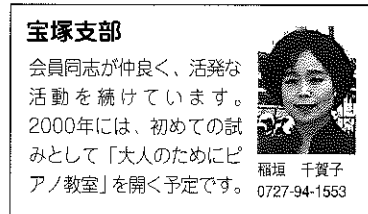 宝塚支部
会員同志が仲良く、活発な
活動を続けています。
2000年には、初めての試
みとして「大人のためにピ
アノ教室」を開く予定です。
稲垣 千賀子
0727-94-1553